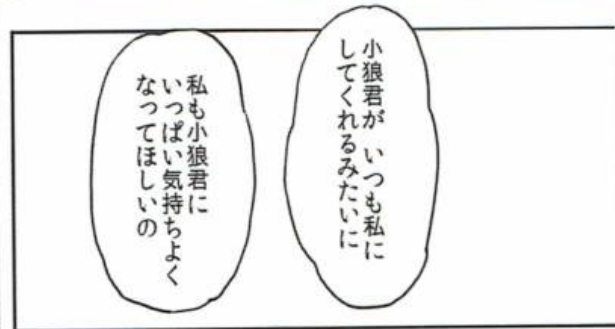 小狼君が いつも私に
してくれるみたいに
私も小狼君に
いっぱい気持ちよく
なってほしいの